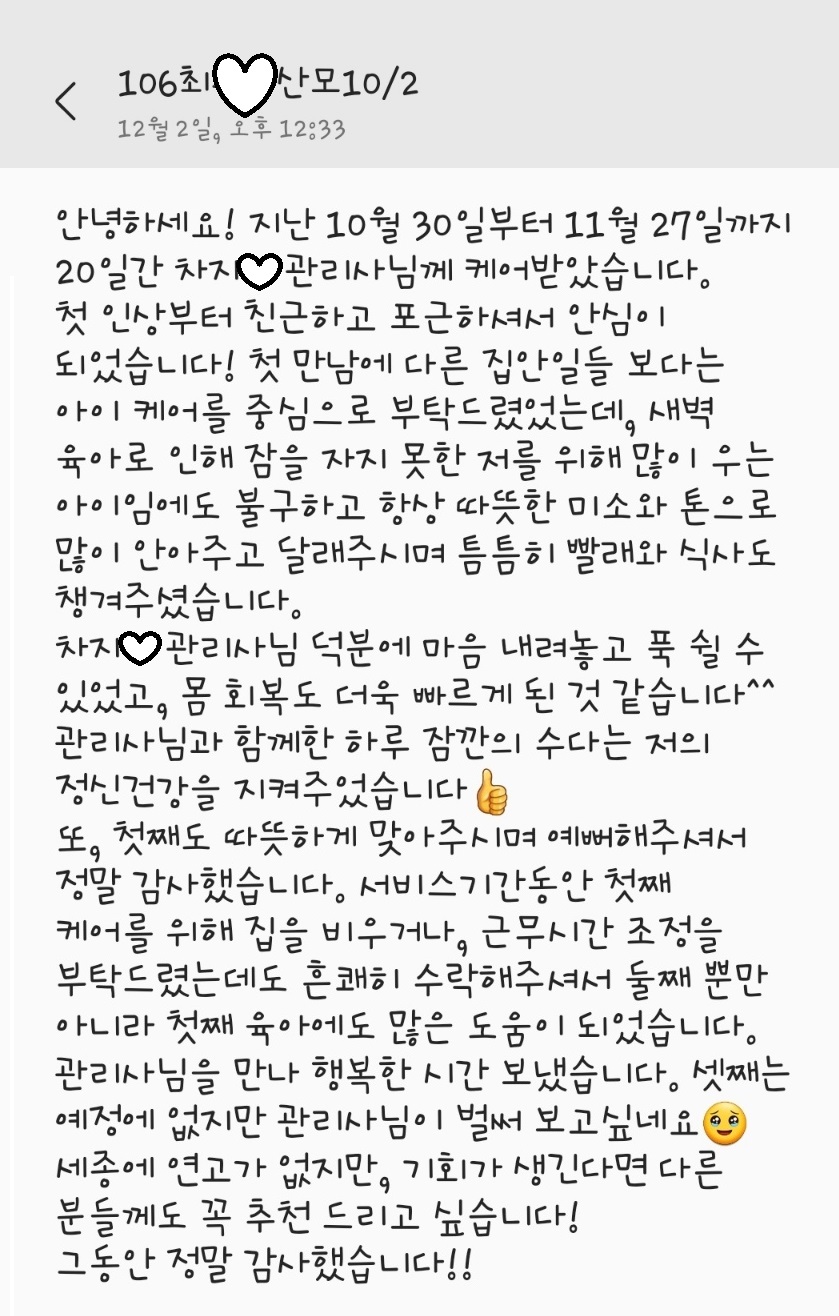 106최 산모10/2
12월 2일, 오후 12:33
안녕하세요! 지난 10월 30일부터 11월 27일까지
20일간 차지 관리사님께 케어받았습니다.
첫 인상부터 친근하고 포근하셔서 안심이
되었습니다! 첫 만남에 다른 집안일들 보다는
아이 케어를 중심으로 부탁드렸었는데, 새벽
육아로 인해 잠을 자지 못한 저를 위해 많이 우는
아이임에도 불구하고 항상 따뜻한 미소와 톤으로
많이 안아주고 달래주시며 틈틈히 빨래와 식사도
챙겨주셨습니다.
차지 관리사님 덕분에 마음 내려놓고 푹 쉴 수
있었고, 몸 회복도 더욱 빠르게 된 것 같습니다^^
관리사님과 함께한 하루 잠깐의 수다는 저의
정신건강을 지켜주었습니다👍
또, 첫째도 따뜻하게 맞아주시며 예뻐해주셔서
정말 감사했습니다. 서비스기간동안 첫째
케어를 위해 집을 비우거나, 근무시간 조정을
부탁드렸는데도 흔쾌히 수락해주셔서 둘째 뿐만
아니라 첫째 육아에도 많은 도움이 되었습니다.
관리사님을 만나 행복한 시간 보냈습니다. 셋째는
예정에 없지만 관리사님이 벌써 보고싶네요🥹
세종에 연고가 없지만, 기회가 생긴다면 다른
분들께도 꼭 추천 드리고 싶습니다!
그동안 정말 감사했습니다!!